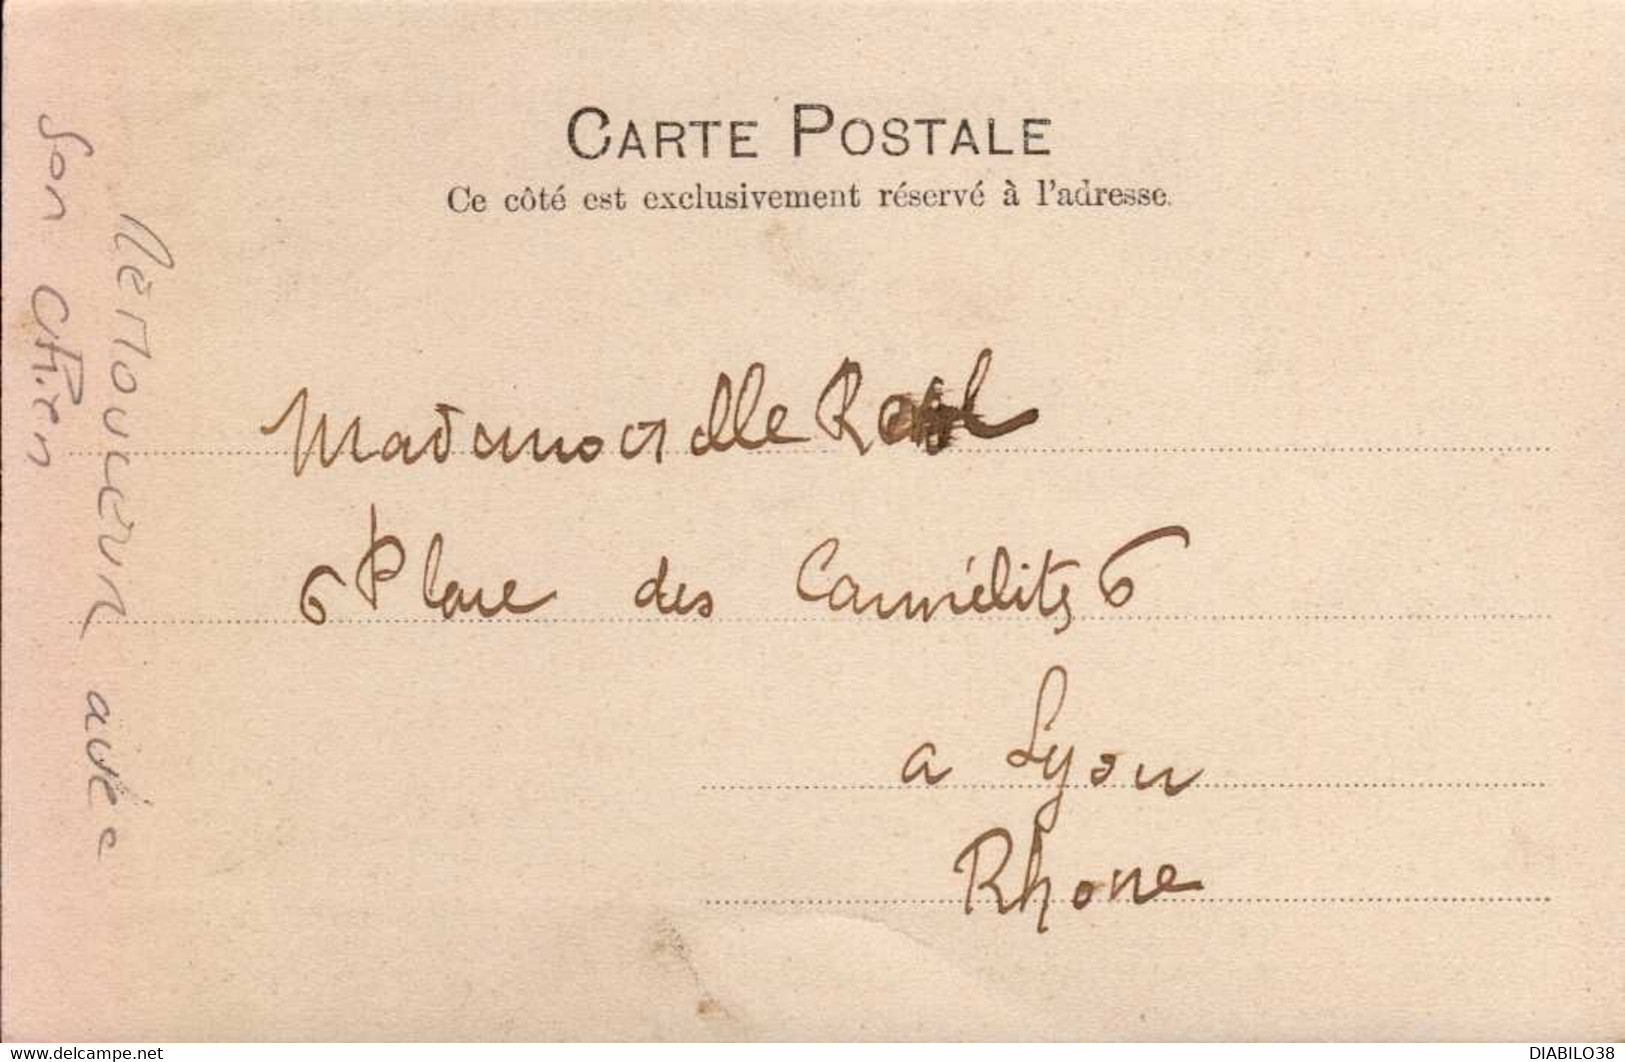 CARTE POSTALE
Ce côté est exclusivement réservé à l'adresse.
Mademoiselle
6 Place des Carmélites 6
a Lyon
Rhone
Rémouleur avec
son chien
DIABILO38